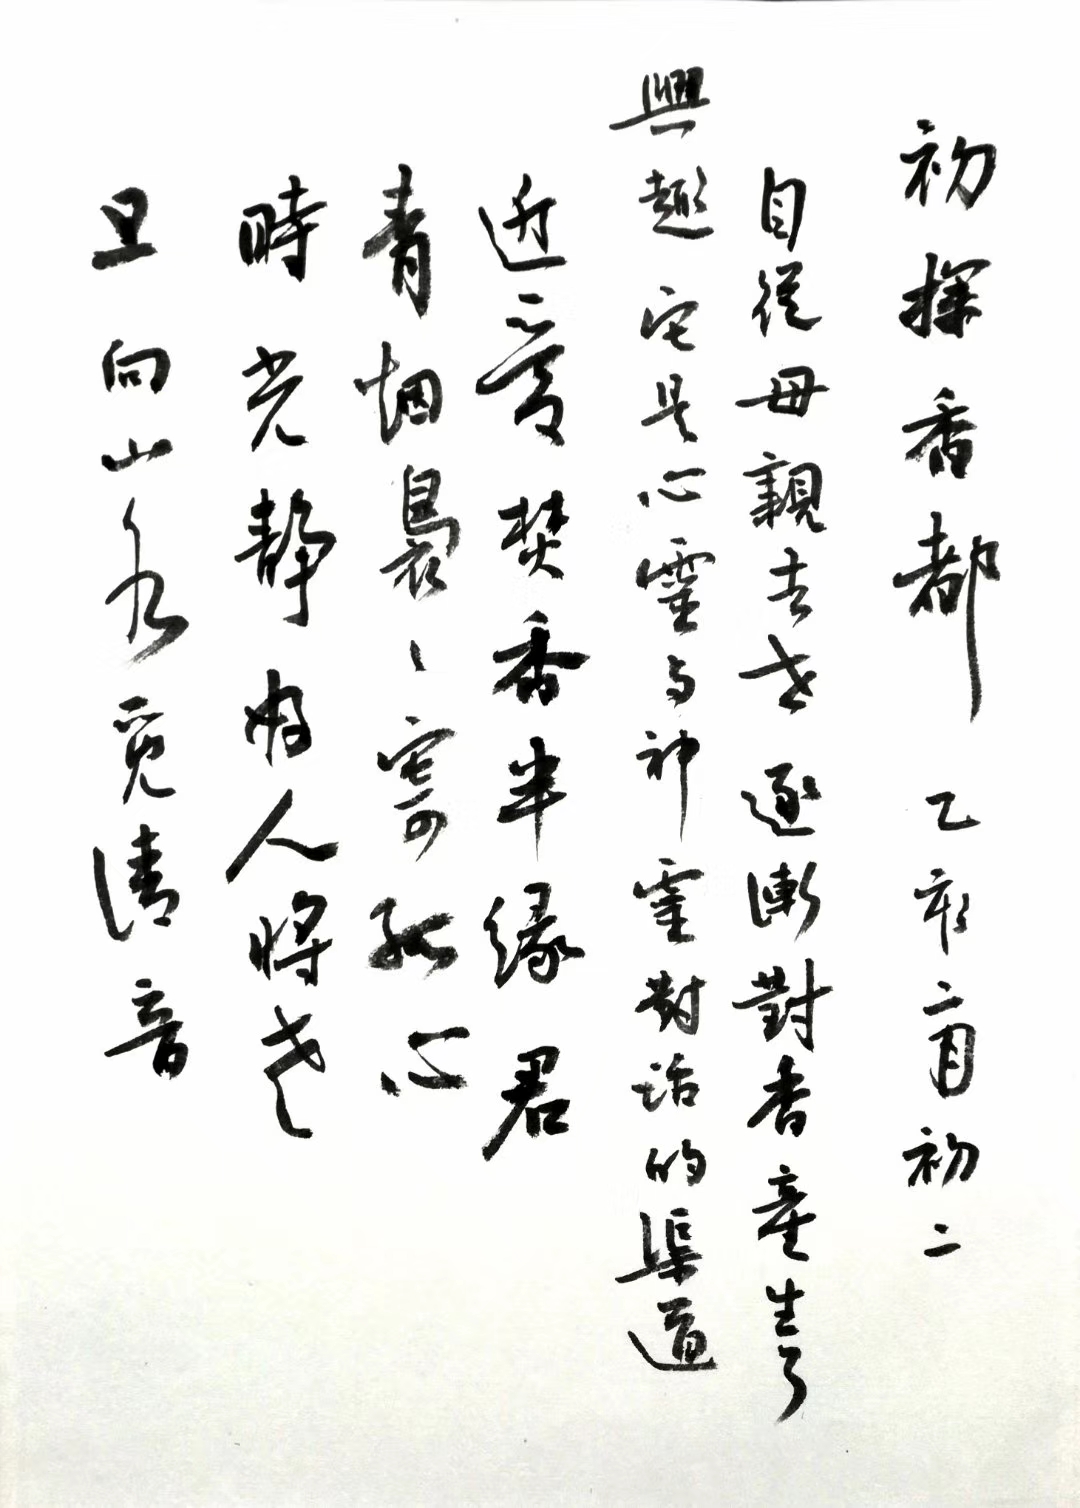 初探香都 乙巳二月初二
自從母親去世逐漸對香產生了
興趣它是心靈与神靈對話的渠道
近愛焚香半緣君
青烟裊裊寄孤心
時光靜好人將老
且向山水覓清音